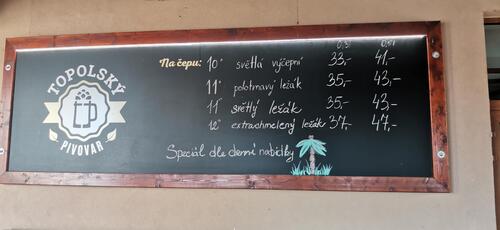 TOPOLSKÝ
PIVOVAR
0,3l 0,5l
Na čepu: 10° světlá výčepní 33,- 41,-
11° polotmavý ležák 35,- 43,-
11° světlý ležák 35,- 43,-
12° extrachmelený ležák 37,- 47,-
Speciál dle denní nabídky